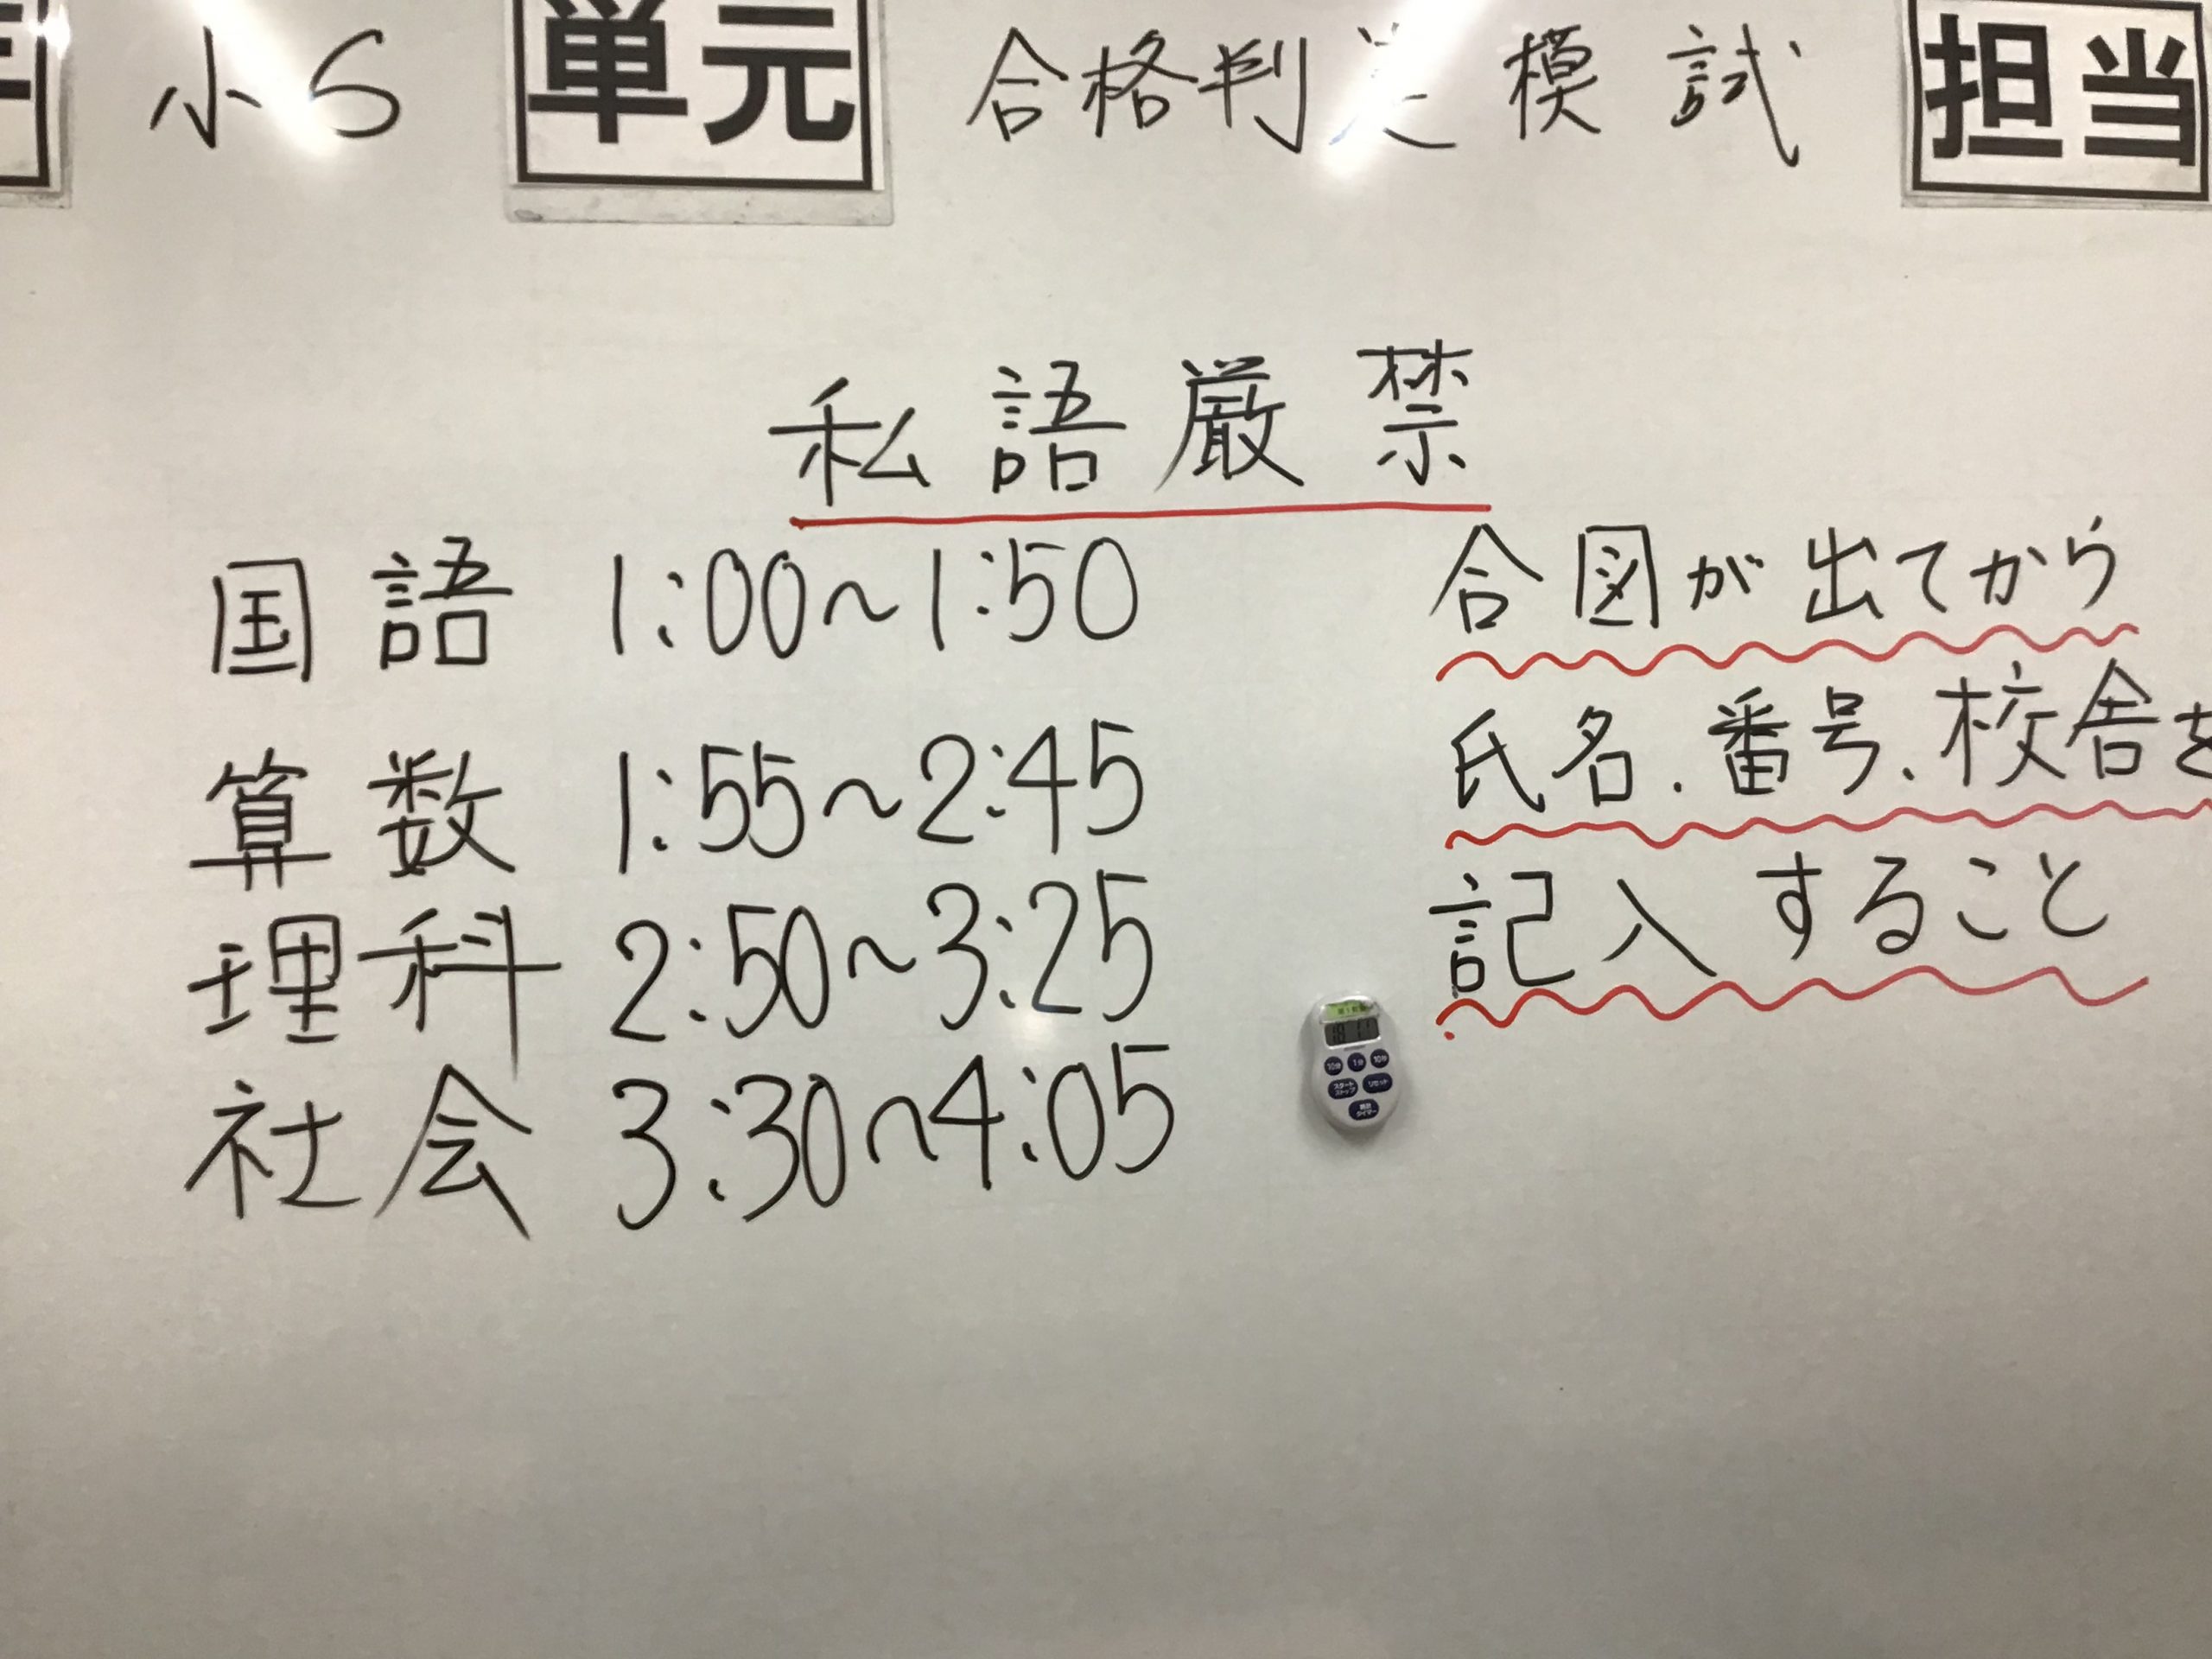 小6 単元 合格判定模試 担当
私語厳禁
国語 1:00～1:50
算数 1:55～2:45
理科 2:50～3:25
社会 3:30～4:05
合図が出てから
氏名、番号、校舎を
記入すること
10分 1分 10秒
スタート
ストップ リセット
時計
タイマー